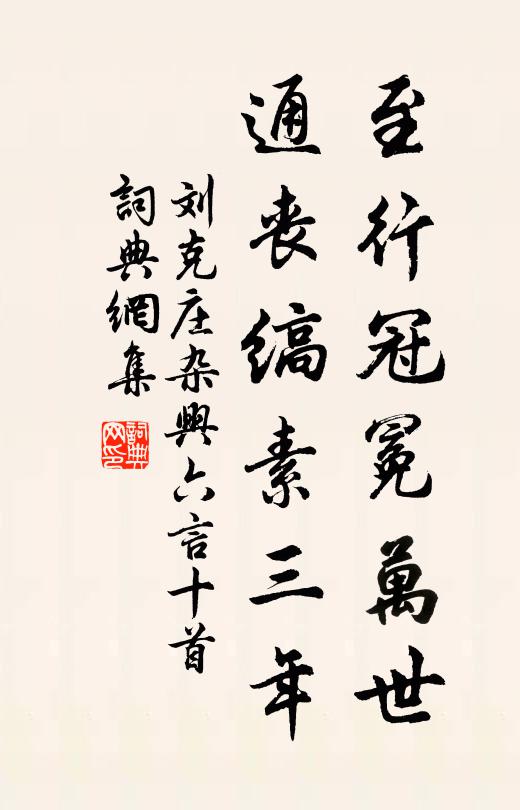 至行冠冕萬世
通丧縞素三年
刘克庄杂興六言十首
詞典網集
詞典网印